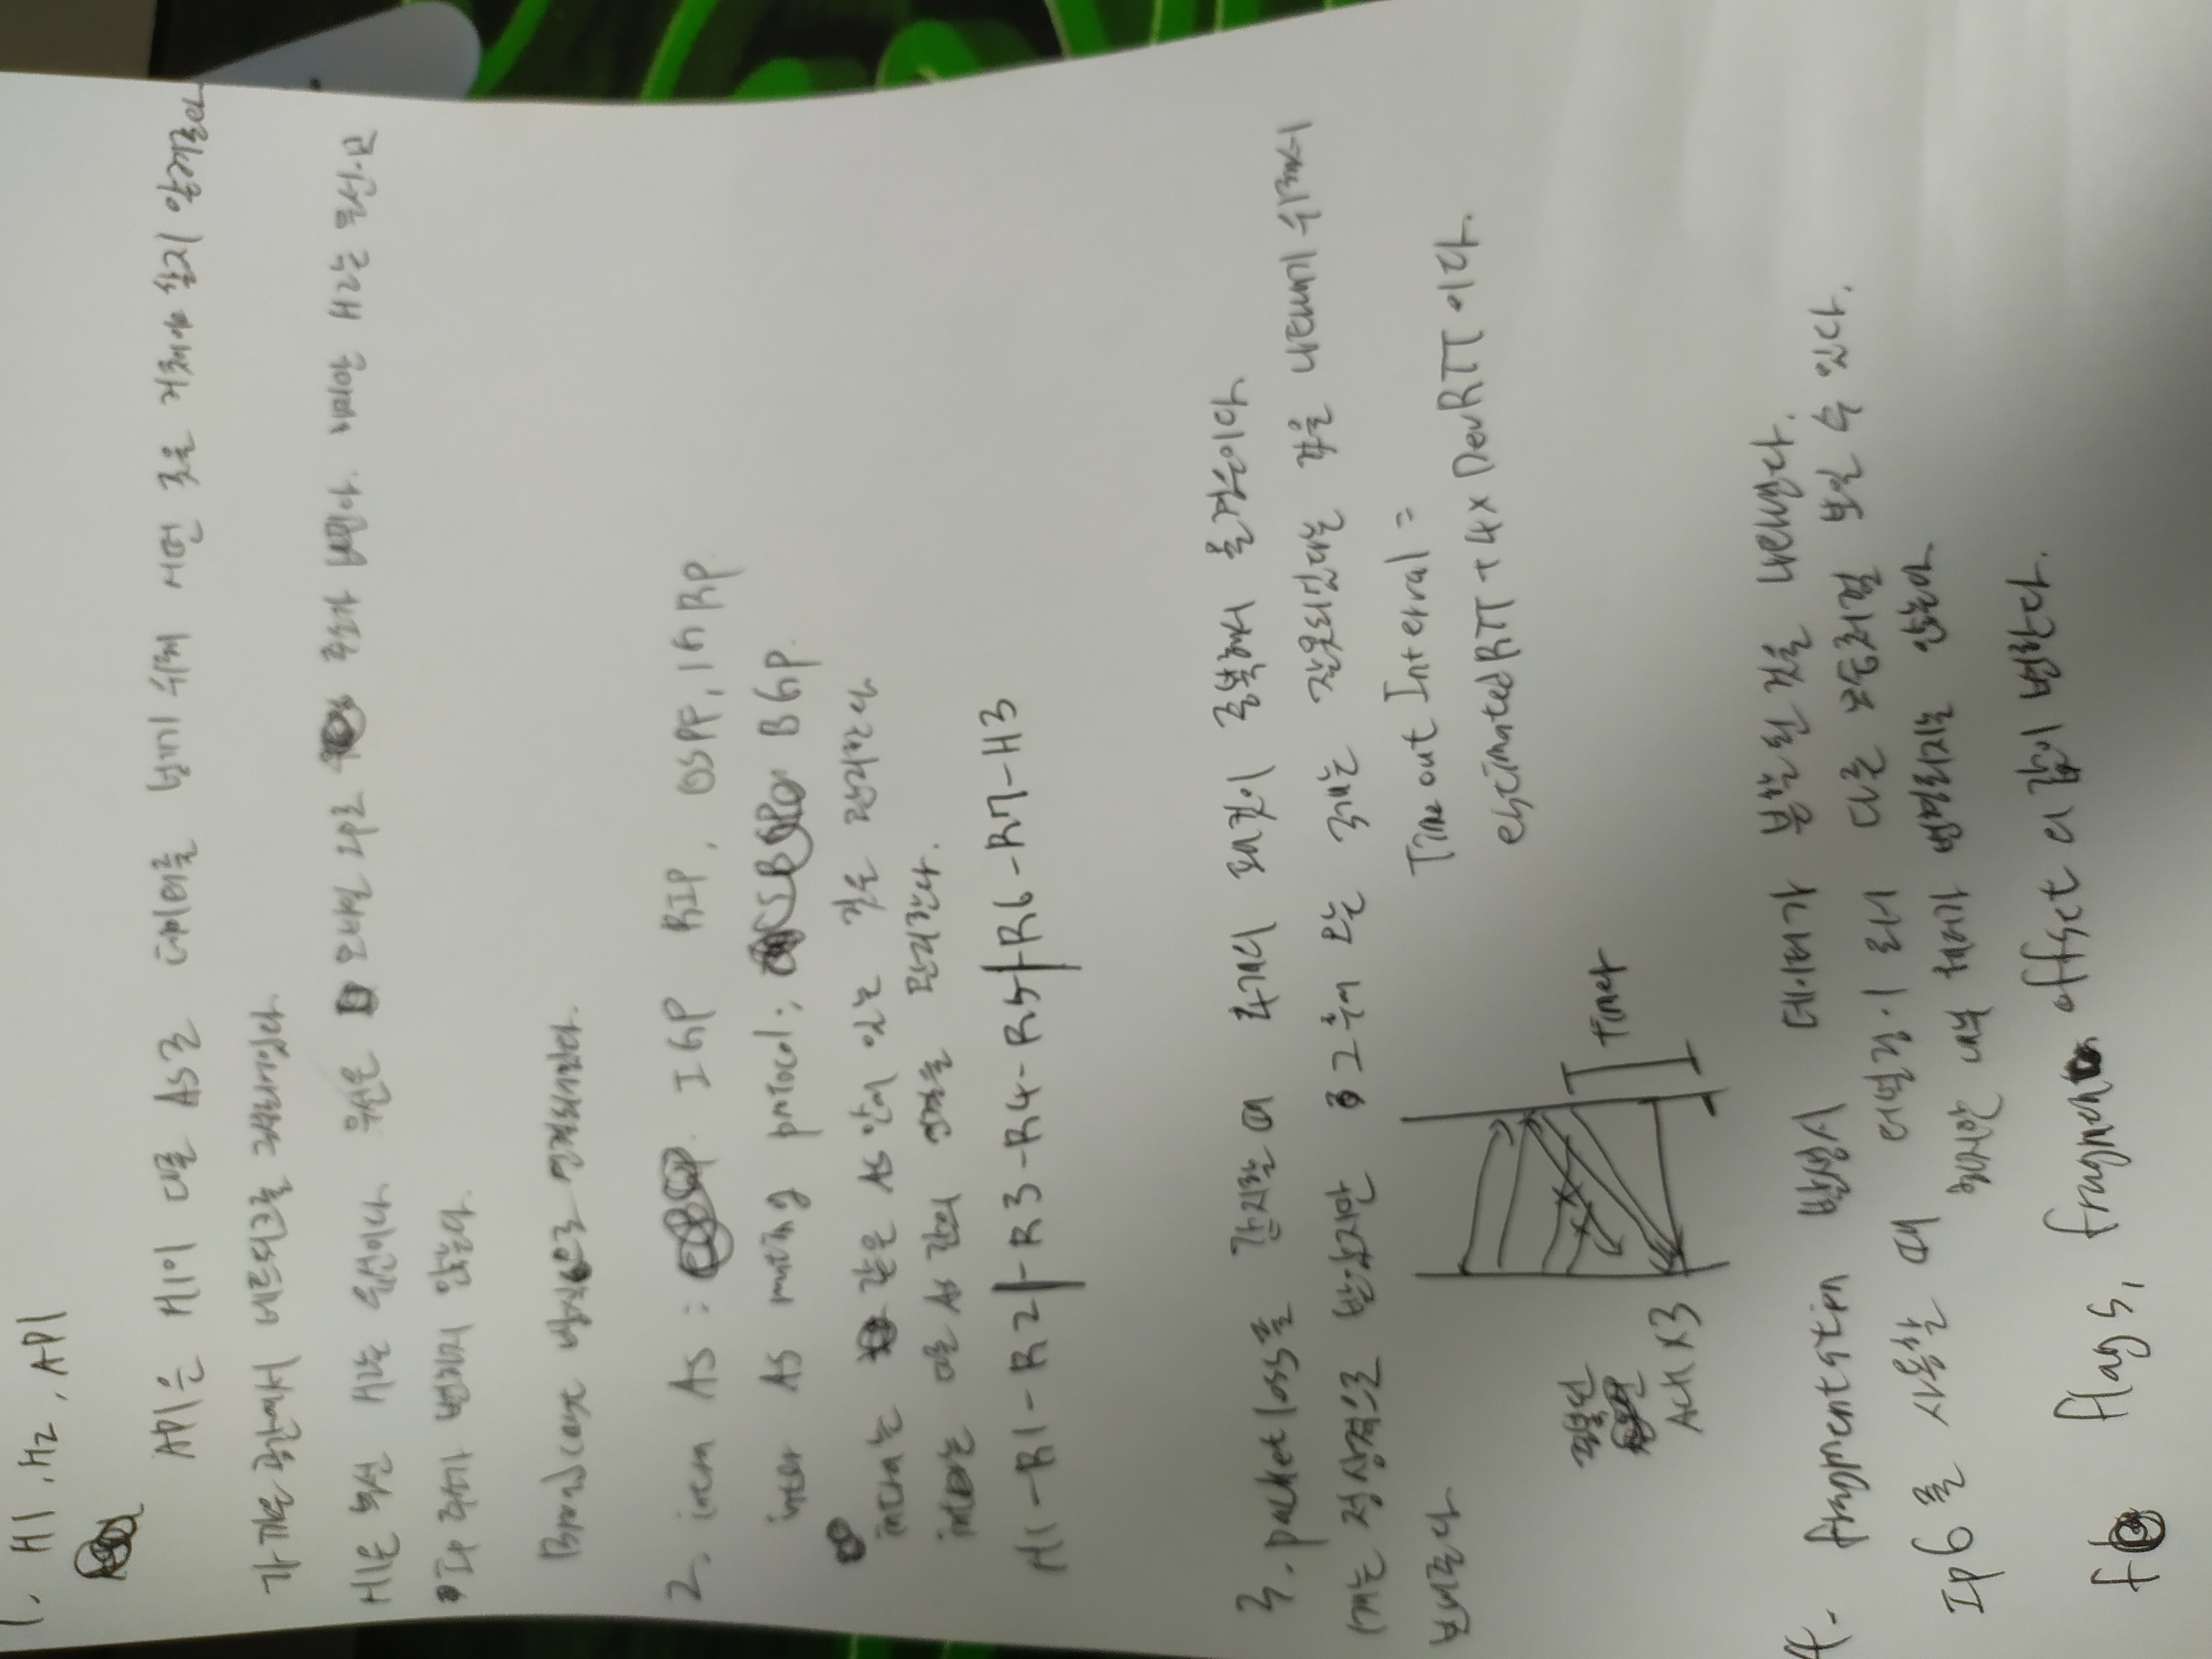 1. H1, H2, AP1
AP1은 H1이 다른 AS로 데이터를 넘기기 위해 어떤 곳을 거쳐야 할지 알려준다
가까운 공간에서 네트워크를 구성되어있다.
H1은 무선 H2는 유선이다. 무선은 모바일 Ip로 주소가 변한다. 하지만 H2는
Ip 주소가 변하지 않는다.
Broadcast 방식으로 연결되어있다.
2. intra AS : IGP RIP, OSPF, IGRP
inter AS routing protocol: BGP.
intra는 같은 AS 안에 있는 것을 관리한다
inter는 다른 AS 간의 연결을 관리한다.
H1 - R1 - R2 | - R3 - R4 - R5 - | R6 - R7 - H3
3. packet loss를 감지할 때 4개의 패킷이 중복해서 올 경우이다.
1개는 정상적으로 받았지만 그 후에 오는 3개는 잘못되었다는 것을 나타내기 위해서
보내준다
Time out Interval =
estimated RTT + 4 x DevRTT 이다.
중복된
Ack x3
timer
4. fragmentation 발생시 데이터가 분할된 것을 나타낸다.
Ip6를 사용할 때 터널링이 로서 다른 모습처럼 보일 수 있다.
하지만 내부 헤더가 변경되지는 않는다
flags, fragment offset의 값이 변한다.